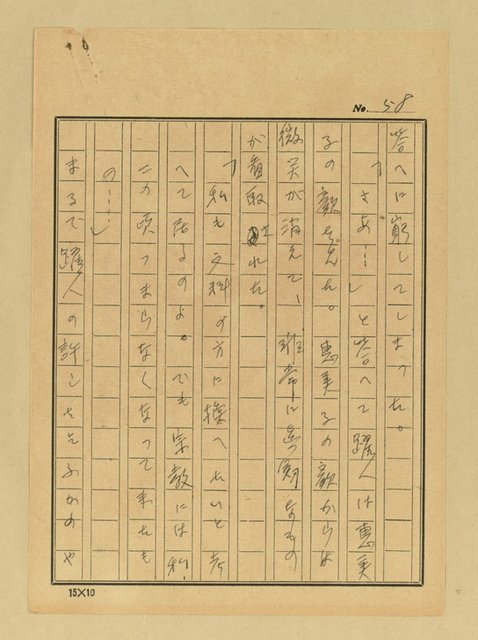 No. 58
答へに窮してしまつた。
「さあ……」と答へて躍人は恵美
子の顔を見た。恵美子の顔からは
微笑が消えて、非常に真剣なもの
が看取された。
「私も文科の方に換へたいと考
へて居るのよ。でも宗教には私、
この頃つまらなくなつて来たも
の……」
まるで躍人の許しを乞ふかのや
15×10